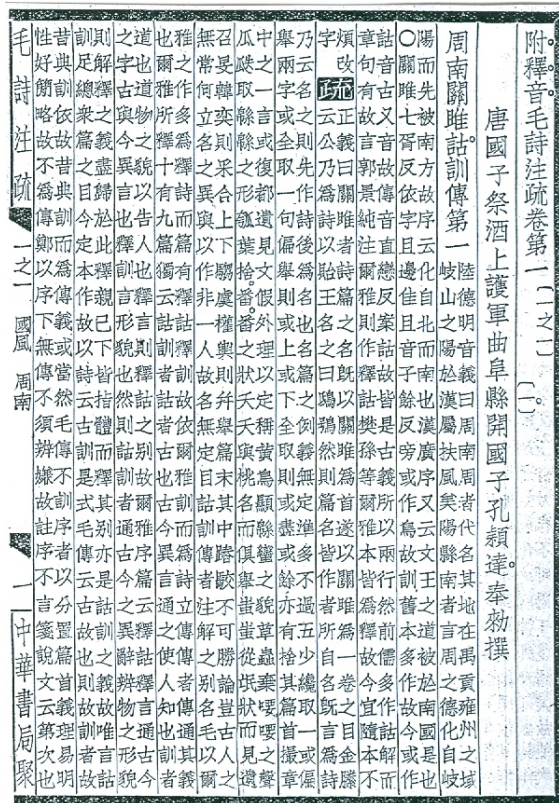 附釋音毛詩注疏卷第一〔一之一〕
〔一〕
唐國子祭酒上護軍曲阜縣開國子孔穎達奉勑撰
周南關雎詁訓傳第一
陸德明音義曰周南周者代名其地在禹貢雍州之域
岐山之陽於漢屬扶風美陽縣南者言周之德化自岐
陽而先被南方故序云化自北而南也漢廣序又云文王之道被於南國是也
○關雎七胥反依字且邊隹且音子餘反旁或作鳥故訓舊本多作故今或作
詁音古又音故傳音直戀反案詁故皆是古義所以兩行然前儒多作詁解而
章句有故言郭景純注爾雅則作釋詁樊孫等爾雅本皆爲釋故今宜隨本不
煩改
字
疏
正義曰關雎者詩篇之名既以關雎爲首遂以關雎爲一卷之目金縢
云公乃爲詩以貽王名之曰鴟鴞然則篇名皆作者所自名既言爲詩
乃云名之則先作詩後爲名也名篇之例義無定準多不過五少纔取一或偏
舉兩字或全取一句偏舉則或上或下全取則或盡或餘亦有捨其篇首撮章
中之一言或復都遺見文假外理以定稱黃鳥顯緜蠻之貌草蟲棄喓喓之聲
瓜瓞取緜緜之形瓠葉捨番番之狀夭夭與桃名而俱舉蚩蚩從氓狀而見遺
召旻韓奕則采合上下騶虞權輿則并舉篇末其中踳駮不可勝論豈古人之
無常何立名之異與以作非一人故名無定目詁訓傳者注解之别名毛以爾
雅之作多爲釋詩而篇有釋詁釋訓故依爾雅訓而爲詩立傳傳者傳通其義
也爾雅所釋十有九篇獨云詁訓者詁者古也古今異言通之使人知也訓者
道也道物之貌以告人也釋言則釋詁之别故爾雅序篇云釋詁釋言通古今
之字古與今異言也釋訓言形貌也然則詁訓者通古今之異辭辨物之形貌
則解釋之義盡歸於此釋親已下皆指體而釋其别亦是詁訓之義故唯言詁
訓足總衆篇之目今定本作故以詩云古訓是式毛傳云古故也則故訓者故
昔典訓依故昔典訓而爲傳義或當然毛傳不訓序者以分置篇首義理易明
性好簡略故不爲傳鄭以序下無傳不須辨嫌故註序不言箋說文云第次也
毛詩注疏 一之一 國風 周南 一 中華書局聚